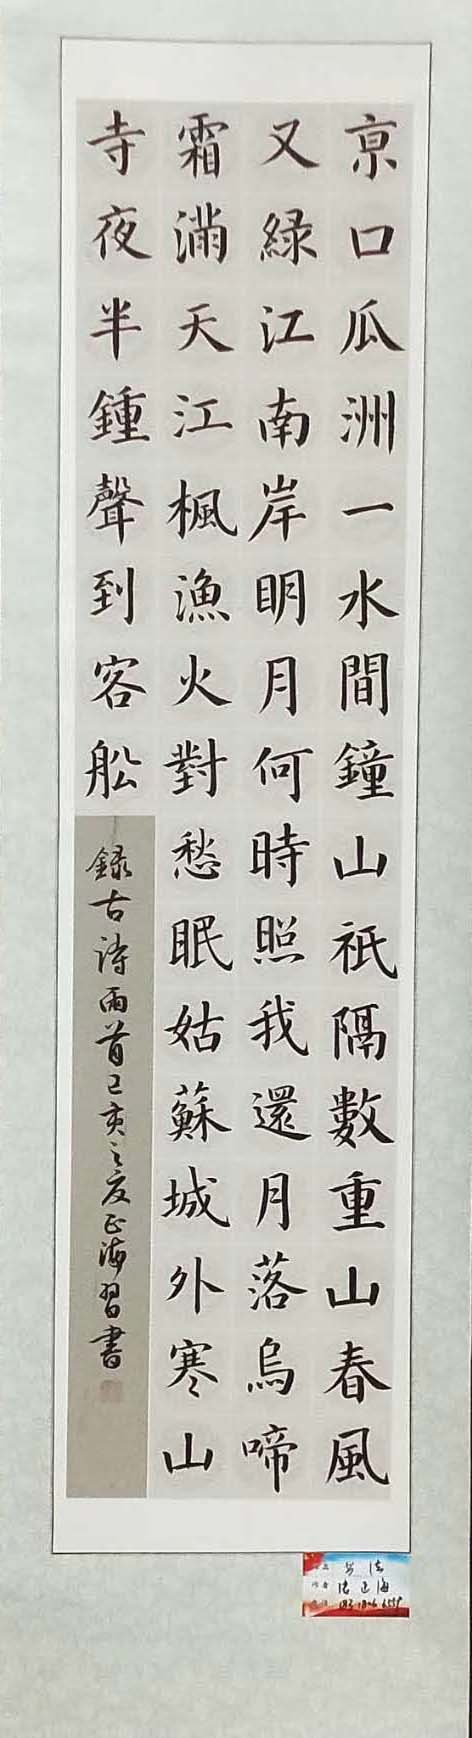 京口瓜洲一水間鐘山祇隔數重山春風
又綠江南岸明月何時照我還月落烏啼
霜滿天江楓漁火對愁眠姑蘇城外寒山
寺夜半鍾聲到客船
録古詩兩首己亥之夏正海習書